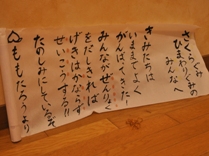 さくらぐみ
ひまわりぐみの
みんなへ
きみたちは
いままでよく
がんばってきた!
みんながぜんりょく
をだしきれば
げきはかならず
せいこうする!!
たのしみにしているぞ
ももたろうより